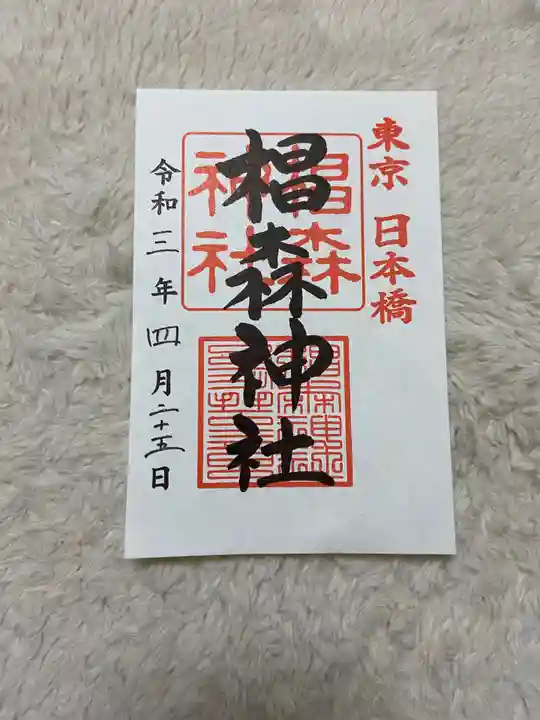 東京 日本橋
椙森
神社
椙森神社
令和三年四月二十五日